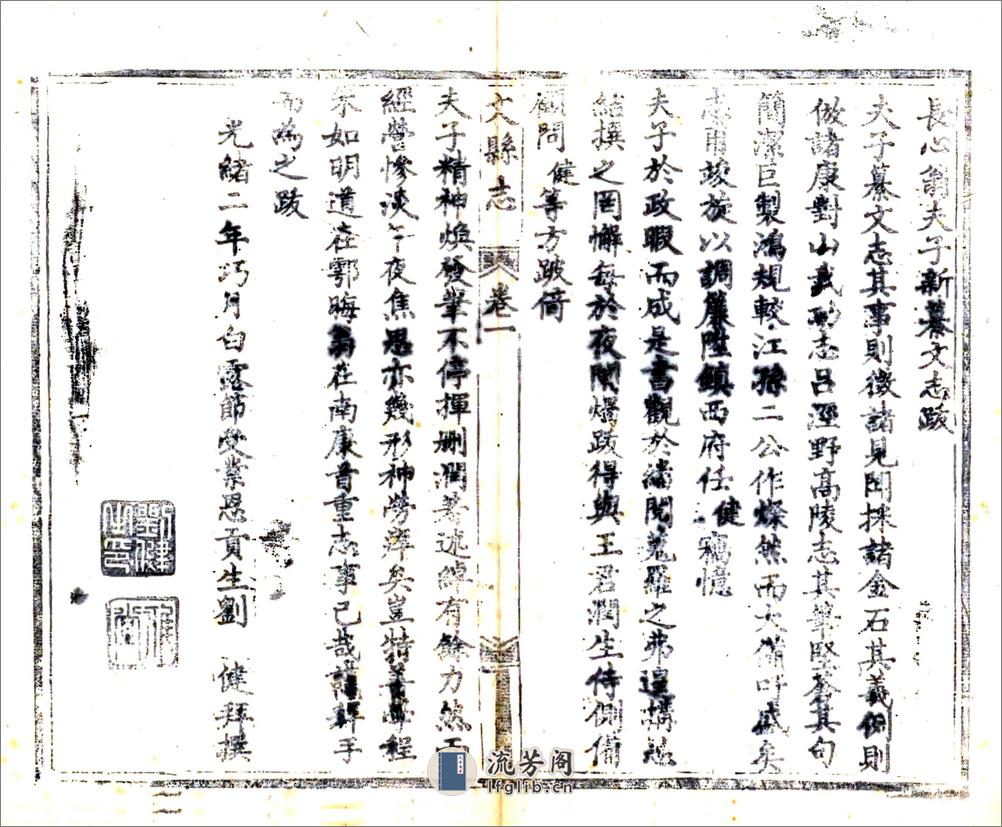 長心翁夫子新纂文志跋
夫子纂文志其事則徵諸見聞採諸金石其義例則
倣諸康對山武功志呂涇野高陵志其筆堅蒼其句
簡潔巨製鴻規較江孫二公作燦然而大備吁盛矣
志甫竣旋以調簾陞鎮西府任健竊憶
夫子於政暇而成是書觀於繙閱蒐羅之弗遑構思
結撰之罔懈每於夜闌燭跋得與王君潤生侍側備
顧問健等方跛倚
文縣志
卷一
夫子精神煥發筆不停揮刪潤著述綽有餘力然而
經營慘淡午夜焦思亦幾形神勞瘁矣豈特
程
朱如明道在鄠晦翁在南康昔重志事已哉謹拜手
而為之跋
光緒二年巧月白露節受業恩貢生劉 健拜撰
劉健之印
流芳阁
lfglib.cn